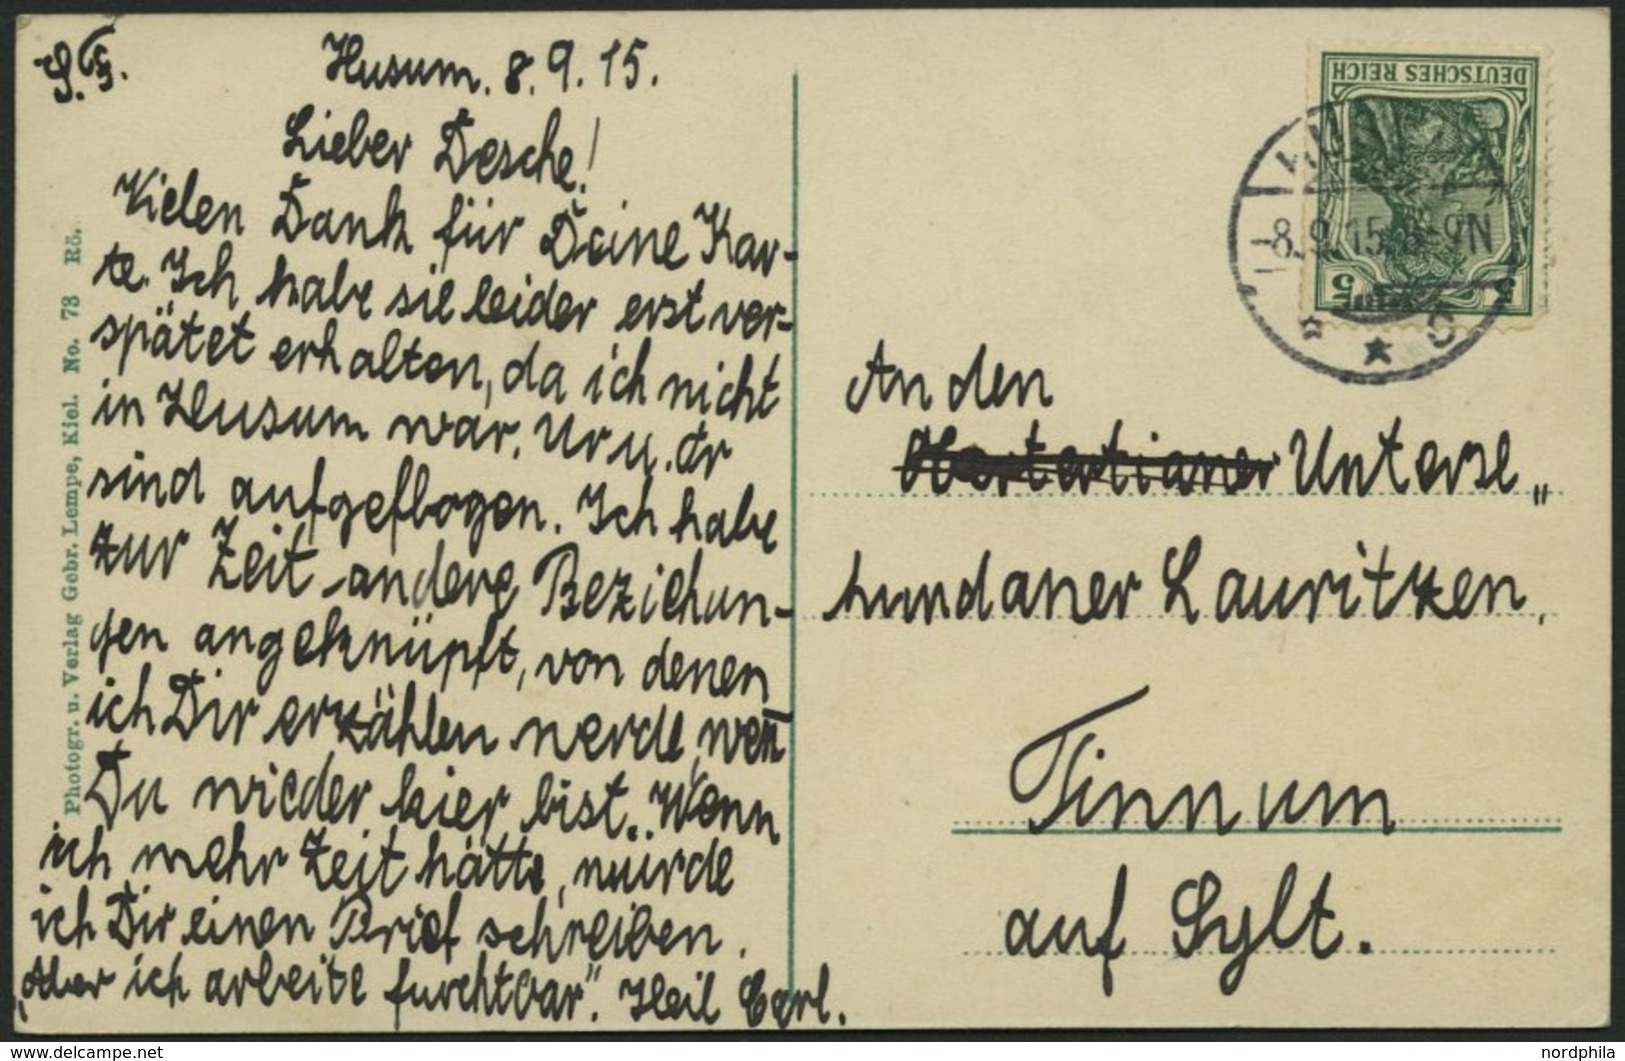 Husum. 8. 9. 15.
Lieber Desche!
Vielen Dank für Deine Kar-
te. Ich habe sie leider erst ver-
spätet erhalten, da ich nicht
in Husum war. Ur u. Or
sind aufgeflogen. Ich habe
zur Zeit andere Beziehun-
gen angeknüpft, von denen
ich Dir erzählen werde, wen̅
Du wieder hier bist. „Wenn
ich mehr Zeit hätte, würde
ich Dir einen Brief schreiben.
„Aber ich arbeite furchtbar". Heil Carl.
Photogr. u. Verlag Gebr. Lempe, Kiel. No. 73 Rö.
DEUTSCHES REICH
5 5
HU
-8.9.15.8-9N
* * c
An den
Obertertianer Unterse„
kundaner Lauritzen,
Tinnum
auf Sylt.
www.delcampe.net
nordphila